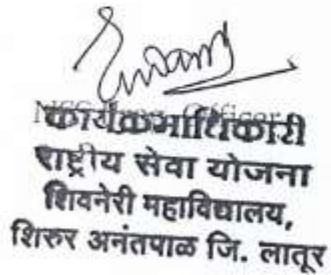 NSS Prog. Officer
कार्यक्रमाधिकारी
राष्ट्रीय सेवा योजना
शिवनेरी महाविद्यालय,
शिरुर अनंतपाळ जि. लातूर